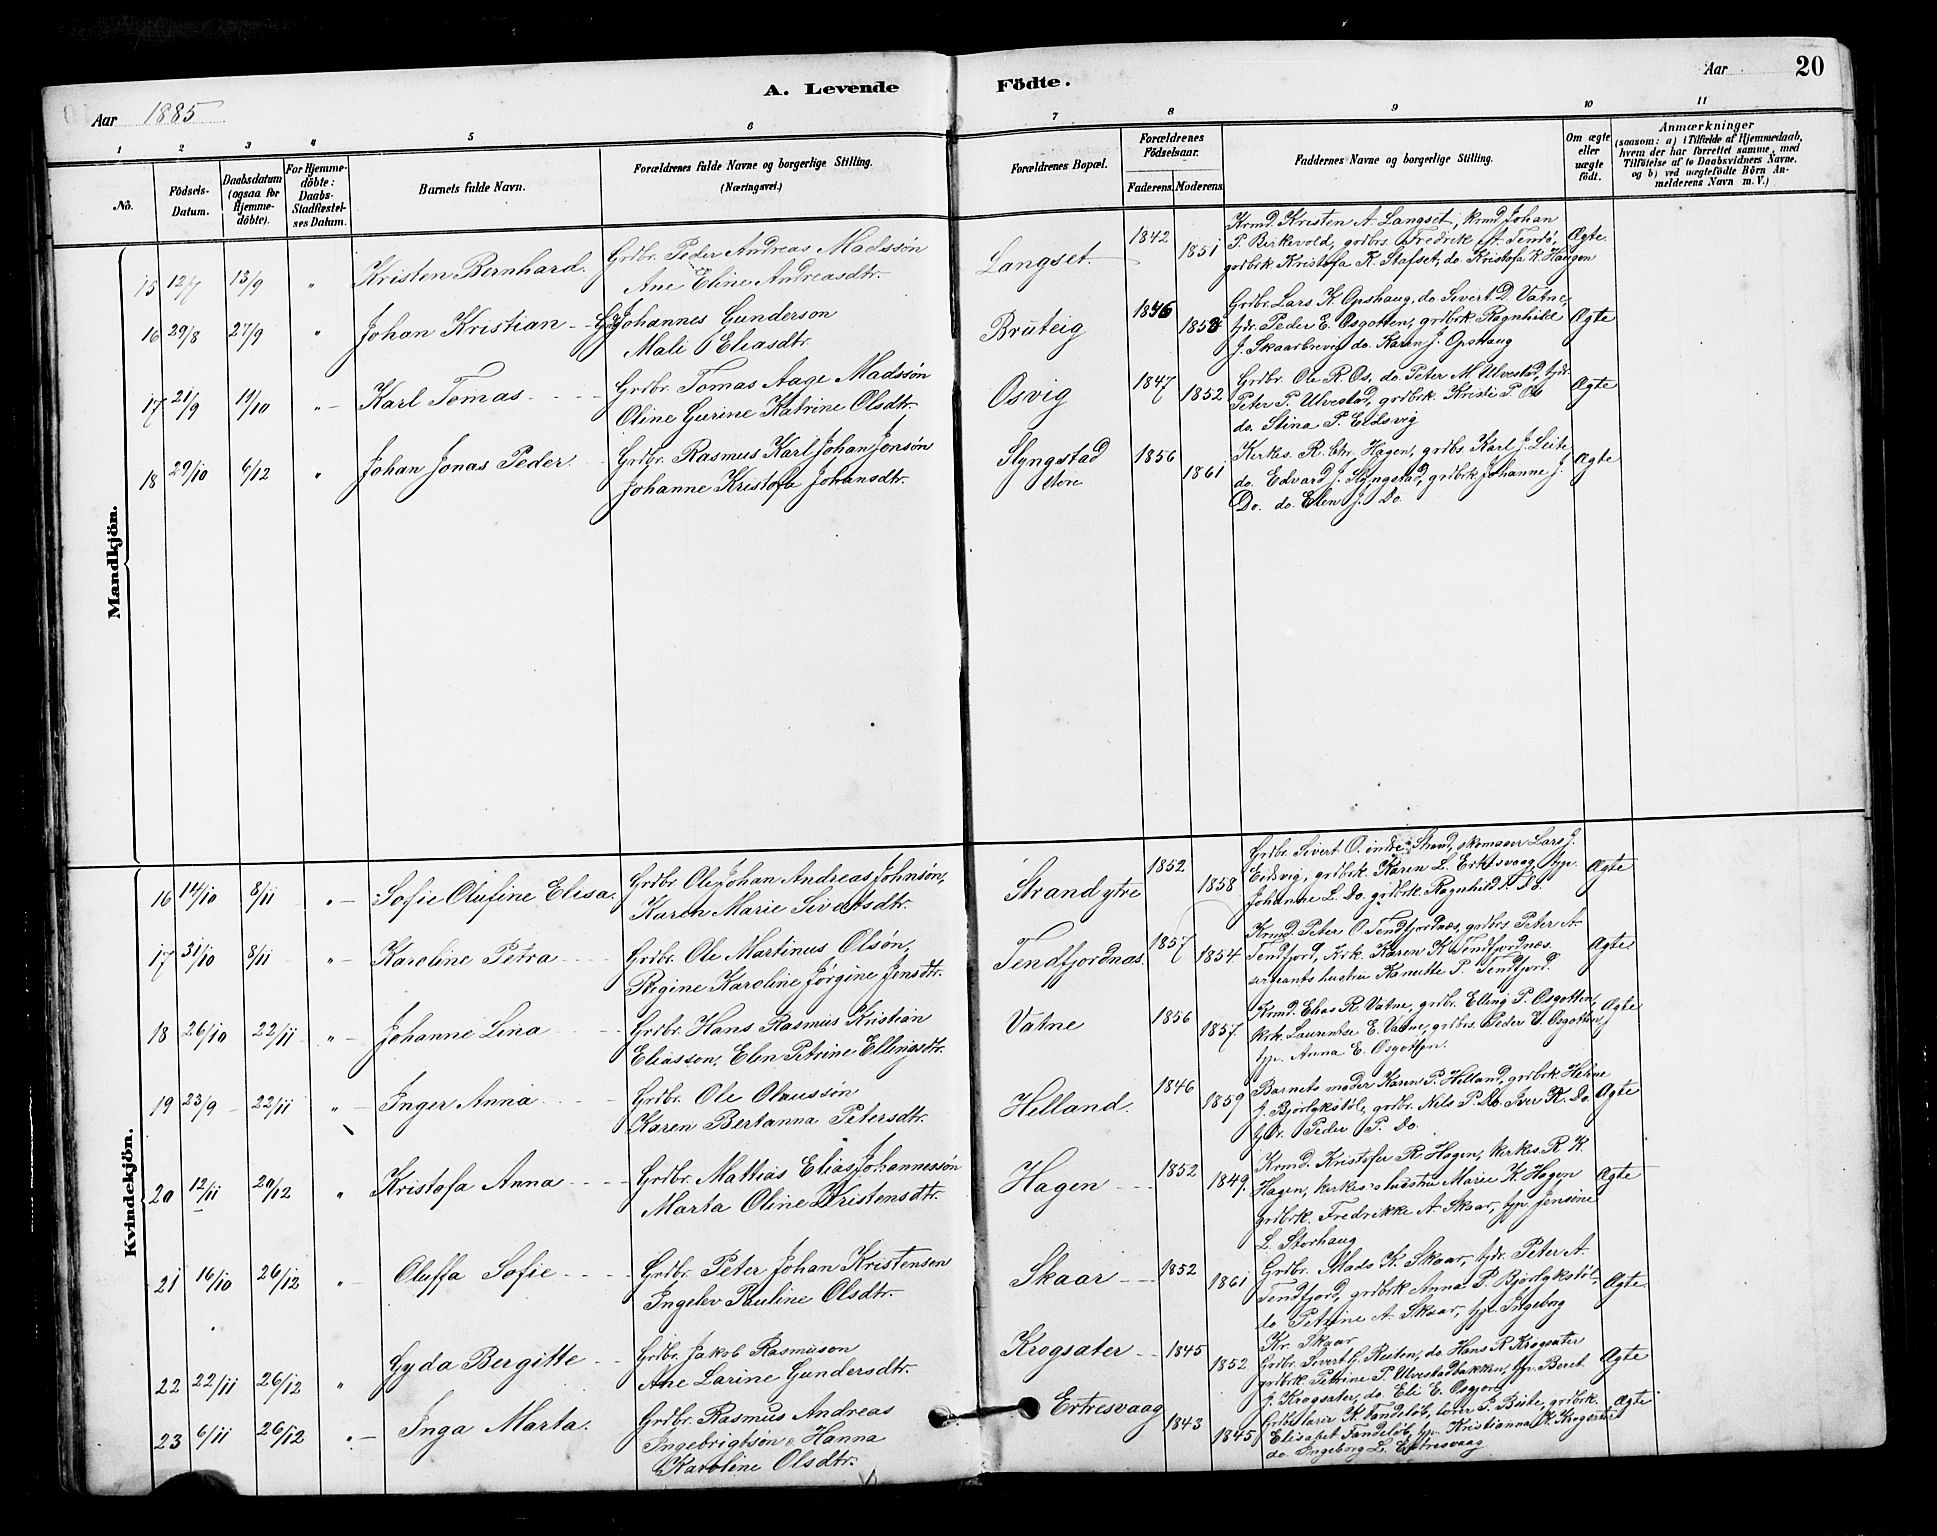 A. Levende Födte.
Aar 1885
Aar 20
1 2 3 4 5 6 7 8 9 10 11
No.
Födsels-
Datum.
Daabsdatum
(ogsaa for
Hjemme-
döbte).
For Hjemme-
döbte:
Daabs-
Stadfæstel-
ses Datum.
Barnets fulde Navn.
Forældrenes fulde Navne og borgerlige Stilling.
(Næringsvei.)
Forældrenes Bopæl.
Forældrenes
Födselsaar.
Faderens. Moderens.
Faddernes Navne og borgerlige Stilling.
Om ægte
eller
uægte
födt.
Anmærkninger
(saasom: a) i Tilfælde af Hjemmedaab,
hvem der har forrettet samme, med
Tilföielse af to Daabsvidners Navne,
og b) ved uægtefödte Börn An-
melderens Navn m. V.)
Mandkjön.
15 12/7 13/9 " Kristen Bernhard.
Grdbr. Peder Andreas Madssøn
Ane Eline Andreasdtr.
Langset. 1842 1851
Krmd. Kristen A. Langset, krmd Johan
P. Birkevold, grdbrs. Fredrik A. Tendø,
grdbrk. Kristofa K. Stafset, do. Kristofa K. Haugen
Ægte.
16 29/8 27/9 " Johan Kristian
Johannes Gunderson
Mali Eliasdtr.
Bruteig 1846 1853
Grdbr. Lars K. Opshaug, do Sivert D. Vatne,
tjdr. Peder E. Osgotten, grdbrk Ragnhilde
J. Skaarbrevig do. Karen J. Opshaug
Ægte
17 21/9 19/10 " Karl Tomas
Grdbr. Tomas Aage Madssøn
Oline Gurine Katrine Olsdtr.
Osvig 1847 1852
Grdbr. Ole R. Os, do. Peter M. Ulvestad, tjdr.
Peter P. Ulvestad, grdbrk. Kristi P. Os
do. Stina P. Eidsvig
Ægte
18 29/10 6/12 " Johan Jonas Peder.
Grdbr. Rasmus Karl Johan Jonsøn
Johanne Kristofa Johansdtr.
Slyngstad
store 1856 1861
Kirkes. R. Chr. Hagen, grdbs Karl J. Leite
do. Edvard J. Slyngstad, grdbrk Johanne J.
Do. do. Elen J. Do
Ægte
Kvindekjön.
16 14/10 8/11 " Sofie Olufine Elisa.
Grdbr. Ole Johan Andreas Johnsøn,
Karen Marie Sivertsdtr.
Strand ytre 1852 1858
Grdbr. Sivert O. indre Strand, skomager Lars J.
Eidsvig, grdbrk. Karen L. Ertesvaag, tjp.
Johanne L. Do. grdbrk. Ragnhild L. Do.
Ægte
17 31/10 8/11 " Karoline Petra
Grdbr. Ole Martinus Olsøn,
Regine Karoline Jørgine Jensdtr.
Tendfjordnæs. 1857 1854
Krmd. Peter O. Tendfjordnæs, grdbrs Peter A.
Tendfjord, Krk. Karen K. Tendfjordnæs.
sergeants hustru Kanutte P. Tendfjord.
Ægte
18 26/10 22/11 " Johanne Lina
Grdbr. Hans Rasmus Kristian
Eliasson, Elen Petrine Ellingsdtr.
Vatne 1856 1857.
Krmd. Elias R. Vatne, grdbr. Elling P. Osgotten,
krk. Laurentse E. Vatne, grdbrs. Peder E. Osgotten,
tjp. Anna E. Osgotten.
Ægte
19 23/9 22/11 " Inger Anna
Grdbr. Ole Olaussøn
Karen Bertanna Petersdtr.
Helland. 1846 1859
Barnets moder Karen P. Helland, grdbrk. Helene
J. Bjørlykstøl, grdbr. Nils P. Do. Iver K. Do.
tjdr. Peder P. Do.
Ægte
20 12/11 20/12 " Kristofa Anna
Grdbr. Mattias Elias Johannessøn
Marta Oline Kristensdtr.
Hagen 1852 1849.
Krmd. Kristofer R. Hagen, kirkes. R. K.
Hagen, kirkes. hustru Marie K. Hagen
grdbrk. Fredrikke A. Skaar, tjp Jensine
L. Storhaug
Ægte
21 16/10 26/12 " Oluffa Sofie
Grdbr. Peter Johan Kristensen
Ingelev Pauline Olsdtr.
Skaar 1852 1861
Grdbr. Mads K. Skaar, tjdr. Peter A.
Tendfjord, grdbrk Anna P. Bjørlykstøl,
do Petrine A. Skaar, tjp. Ingeborg
Kr. Skaar
Ægte.
22 22/11 26/12 " Gyda Bergitte
Grdbr. Jakob Rasmuson
Ane Larine Gundersdtr.
Krogsæter 1845 1852
Grdbr. Sivert G. Resten, do Hans R. Krogsæter
grdbrk Petrine P. Ulvestadbakken, tjp. Beret
J. Krogsæter, do. Eli E. Osgjord
Ægte
23 6/11 26/12 " Inga Marta.
Grdbr. Rasmus Andreas
Ingebrigtsøn o Hanna
Karoline Olsdtr.
Ertresvaag 1843 1845
K. Tandeløb, P. Bite, grdbrk.
Elisabet Tandeløb, tjp. Kristianna K. Krogsæter
do. Ingeborg L. Ertresvaag
Ægte